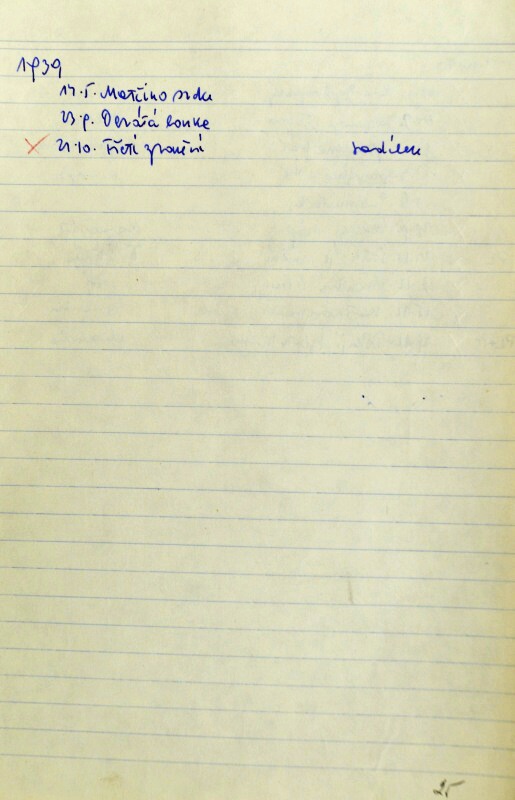 1939
14.5. Matčino srdce
23.9. Devátá louka
21.10. Třetí zvonění sadílek
25